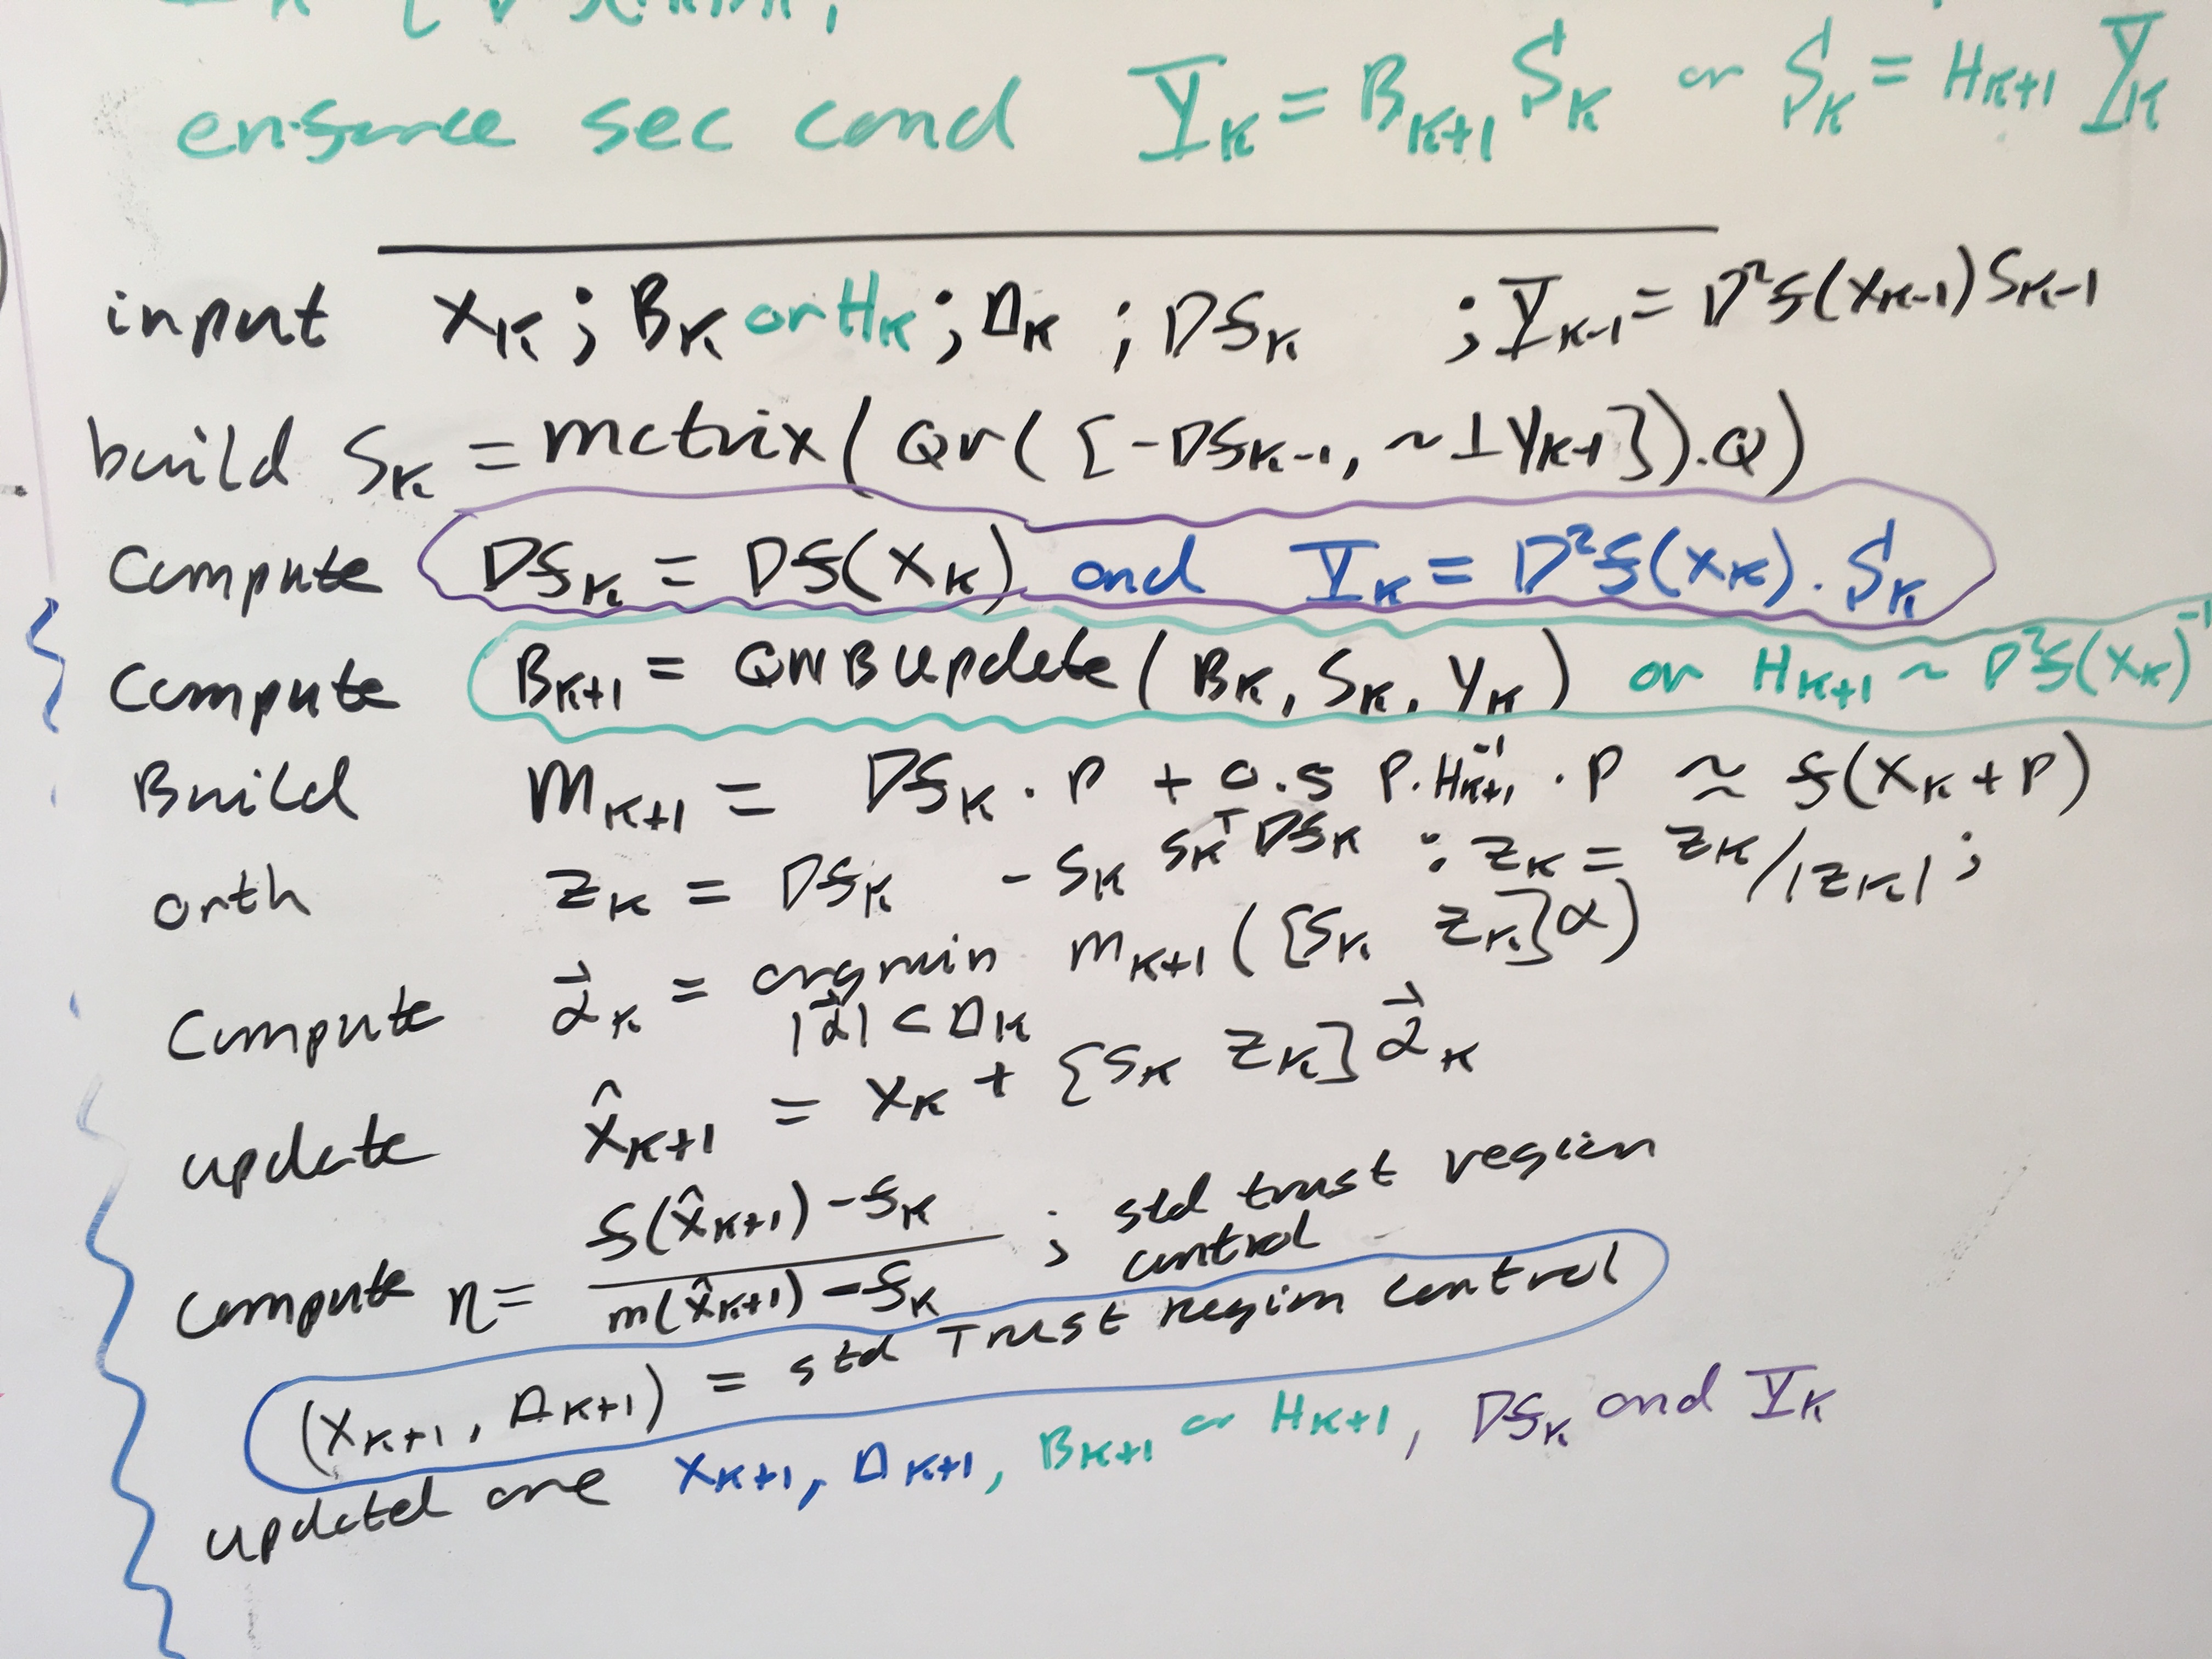 ensure sec cond Y_K = B_K+1 S_K or S_K = H_K+1 Y_K
input X_K ; B_K or H_K ; Δ_K ; ∇f_K ; Y_K-1 = ∇²f(X_K-1) S_K-1
build S_K = matrix( Qr( [-∇f_K-1, ~⊥ Y_K-1 ]).Q)
Compute ∇f_K = ∇f(X_K) and Y_K = ∇²f(X_K) . S_K
Compute B_K+1 = QNBUpdate( B_K, S_K, Y_K ) or H_K+1 ~ ∇²f(X_K)⁻¹
Build M_K+1 = ∇f_K . P + 0.5 P . H_K+1⁻¹ . P ≈ f(X_K + P)
orth Z_K = ∇f_K - S_K S_K^T ∇f_K : Z_K = Z_K/|Z_K| ;
Compute α⃗_K = argmin M_K+1 ( [S_K Z_K] α )
|α⃗| < Δ_K
update X̂_K+1 = X_K + [S_K Z_K] α⃗_K
compute η = f(X̂_K+1) - f_K / m(X̂_K+1) - f_K ; std trust region control
(X_K+1, Δ_K+1) = std Trust Region control
updated are X_K+1, Δ_K+1, B_K+1 or H_K+1, ∇f_K and Y_K